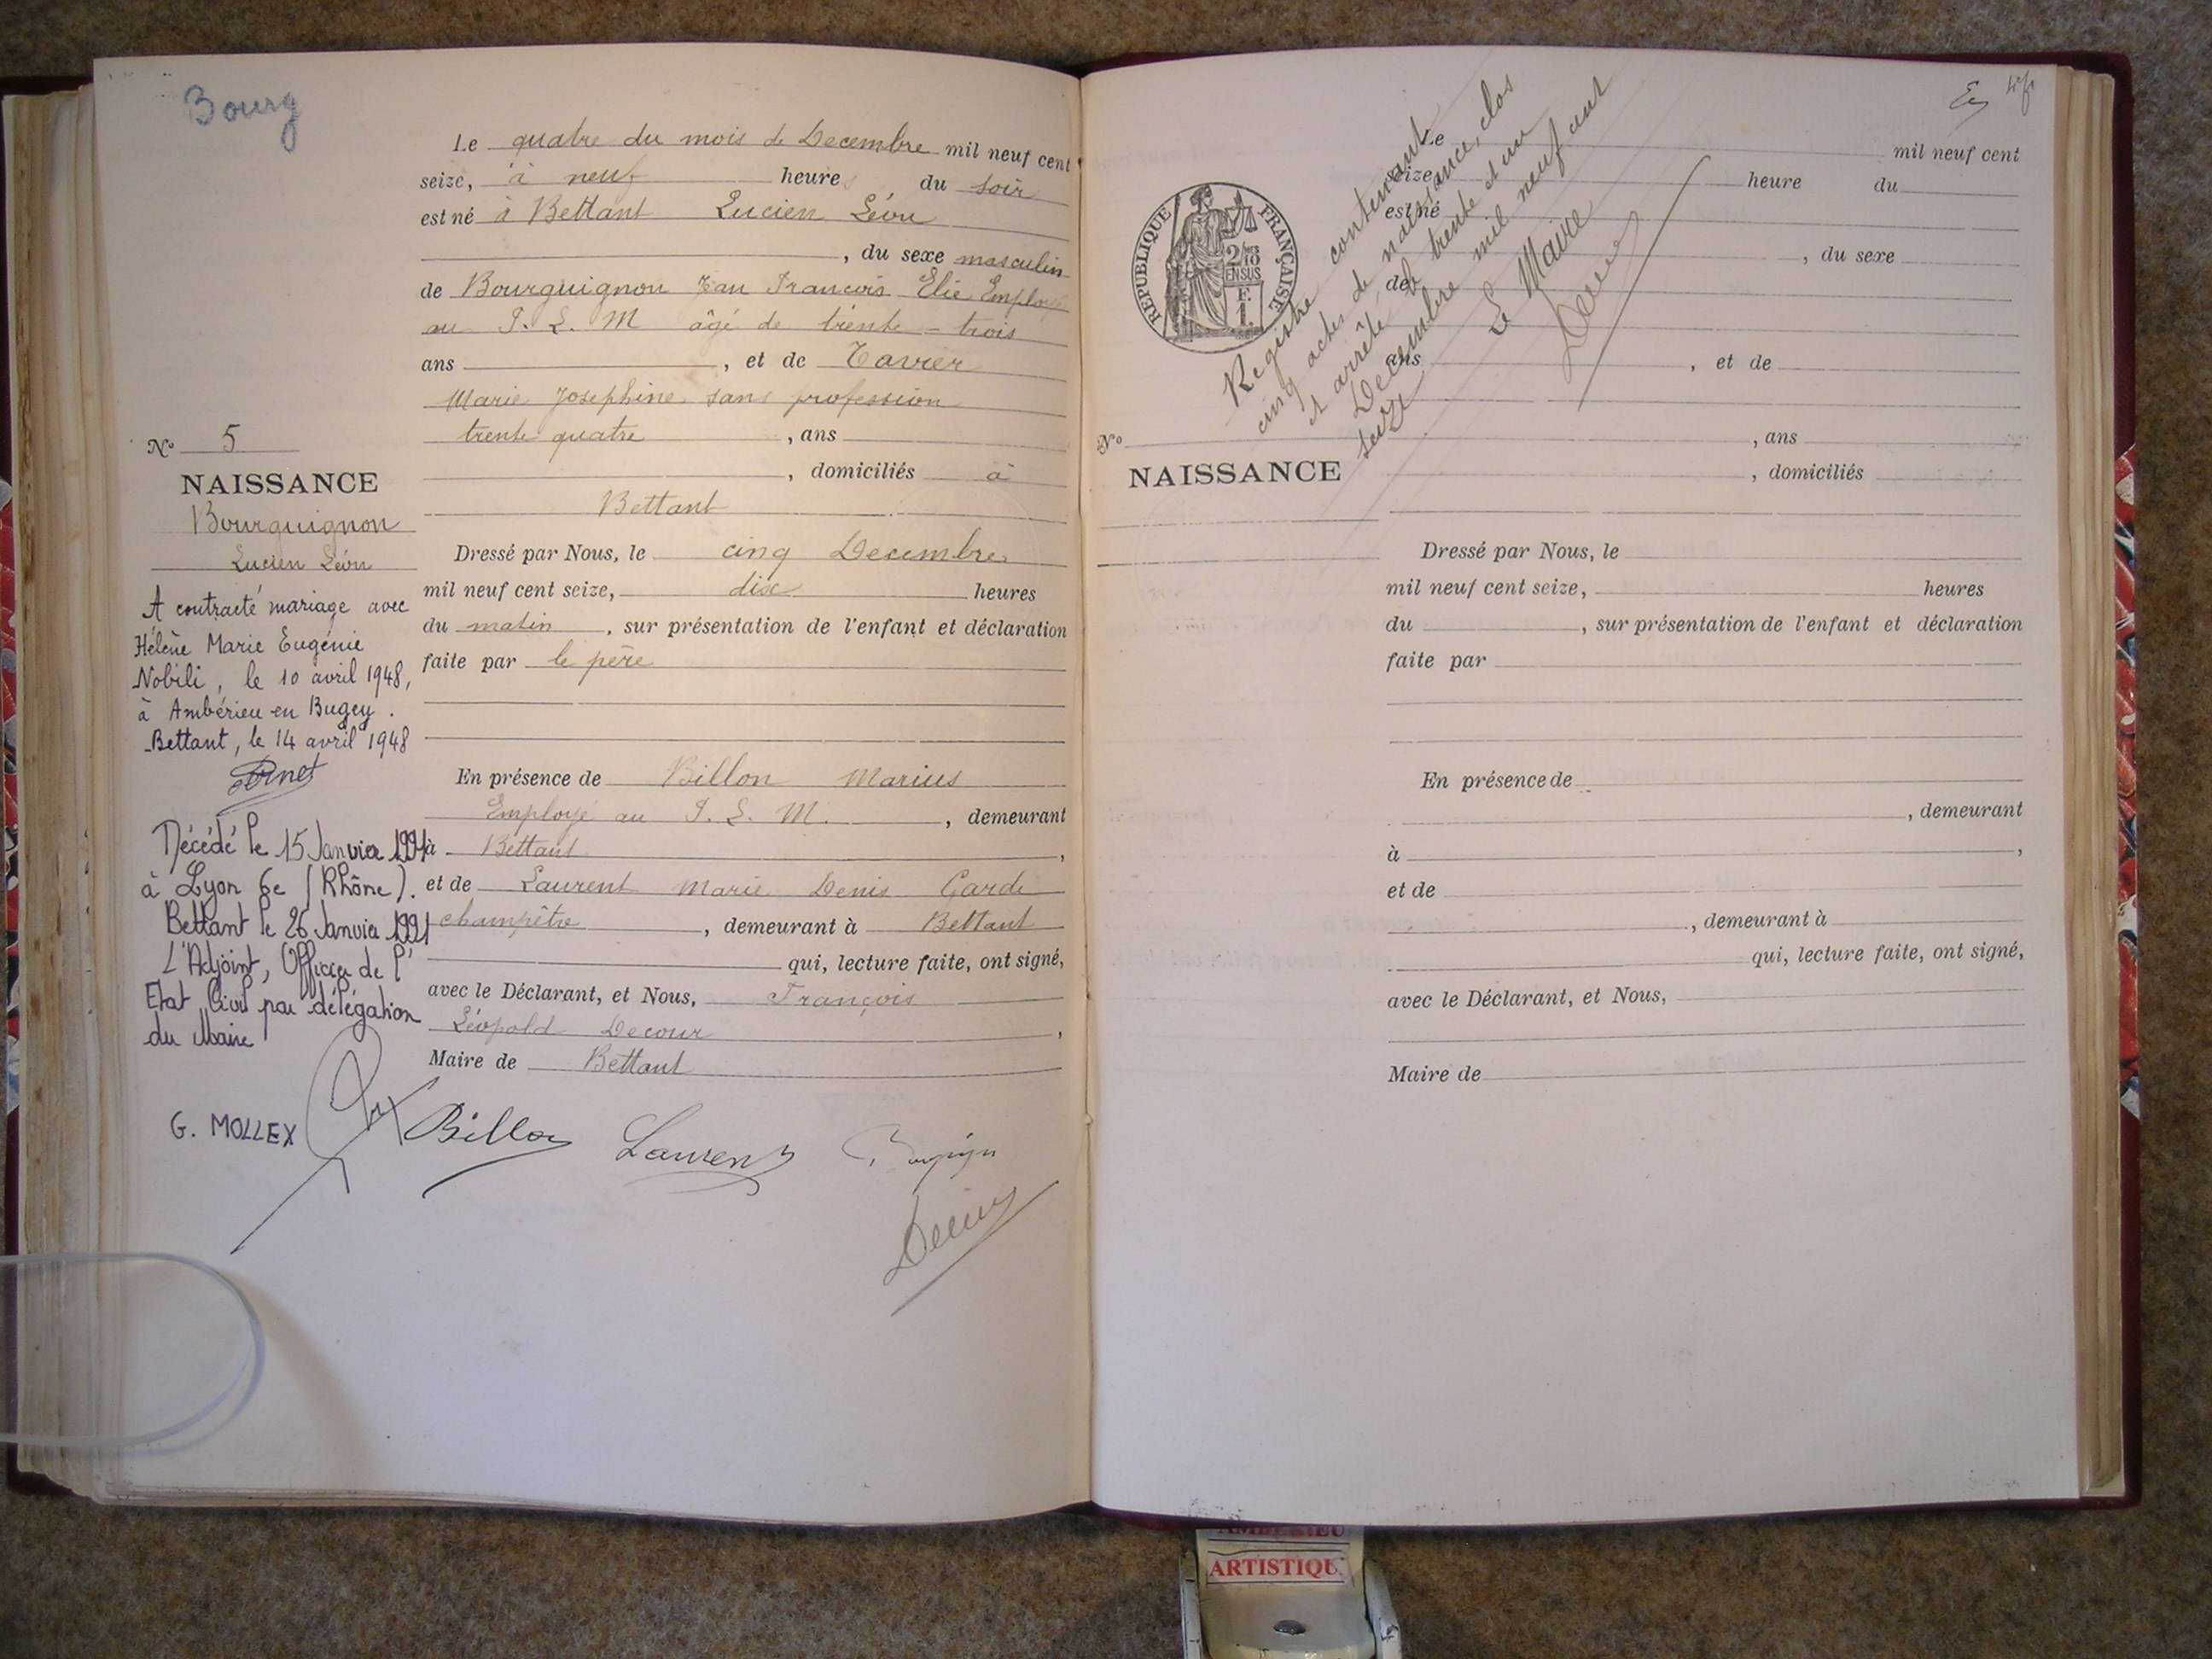 Bourg
Le quatre du mois de Decembre mil neuf cent
seize, à neuf heures du soir
est né à Bettant Lucien Léon
, du sexe masculin
de Bourguignon Jean Francois Elie Employé
au P. L. M âgé de trente-trois
ans , et de Tavier
Marie Josephine sans profession
trente quatre , ans
, domiciliés à
Bettant
Dressé par Nous, le cinq Decembre
mil neuf cent seize, dix heures
du matin , sur présentation de l'enfant et déclaration
faite par le père
En présence de Billon Marius
Employé au P. L. M. , demeurant
à Bettant ,
et de Laurent Marie Denis Garde
champêtre , demeurant à Bettant
qui, lecture faite, ont signé,
avec le Déclarant, et Nous, François
Léopold Decour ,
Maire de Bettant
Nº 5
NAISSANCE
Bourguignon
Lucien Léon
A contracté mariage avec
Hélène Marie Eugénie
Nobili, le 10 avril 1948,
à Ambérieu en Bugey.
Bettant, le 14 avril 1948
Décédé le 15 Janvier 1991
à Lyon 6e (Rhône).
Bettant le 26 Janvier 1991
L'Adjoint, Officier de l'
Etat Civil par délégation
du Maire
G. MOLLEX
Billon
Laurent
RÉPUBLIQUE FRANÇAISE
2/10
EN SUS
F.
1.
Registre contenant
cinq actes de naissance, clos
et arrêté le trente et un
Decembre mil neuf cent
seize
Le Maire
Le mil neuf cent
seize, heure du
est né
, du sexe
de
ans , et de
, ans
, domiciliés
Nº
NAISSANCE
Dressé par Nous, le
mil neuf cent seize, heures
du , sur présentation de l'enfant et déclaration
faite par
En présence de
, demeurant
à ,
et de
, demeurant à
qui, lecture faite, ont signé,
avec le Déclarant, et Nous,
Maire de
AMBERIEU
ARTISTIQU